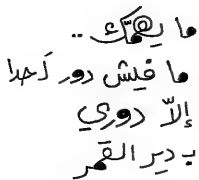 ما يهمّك ..
ما فيش دور لَحدا
إلاّ دوري
بدير القمر